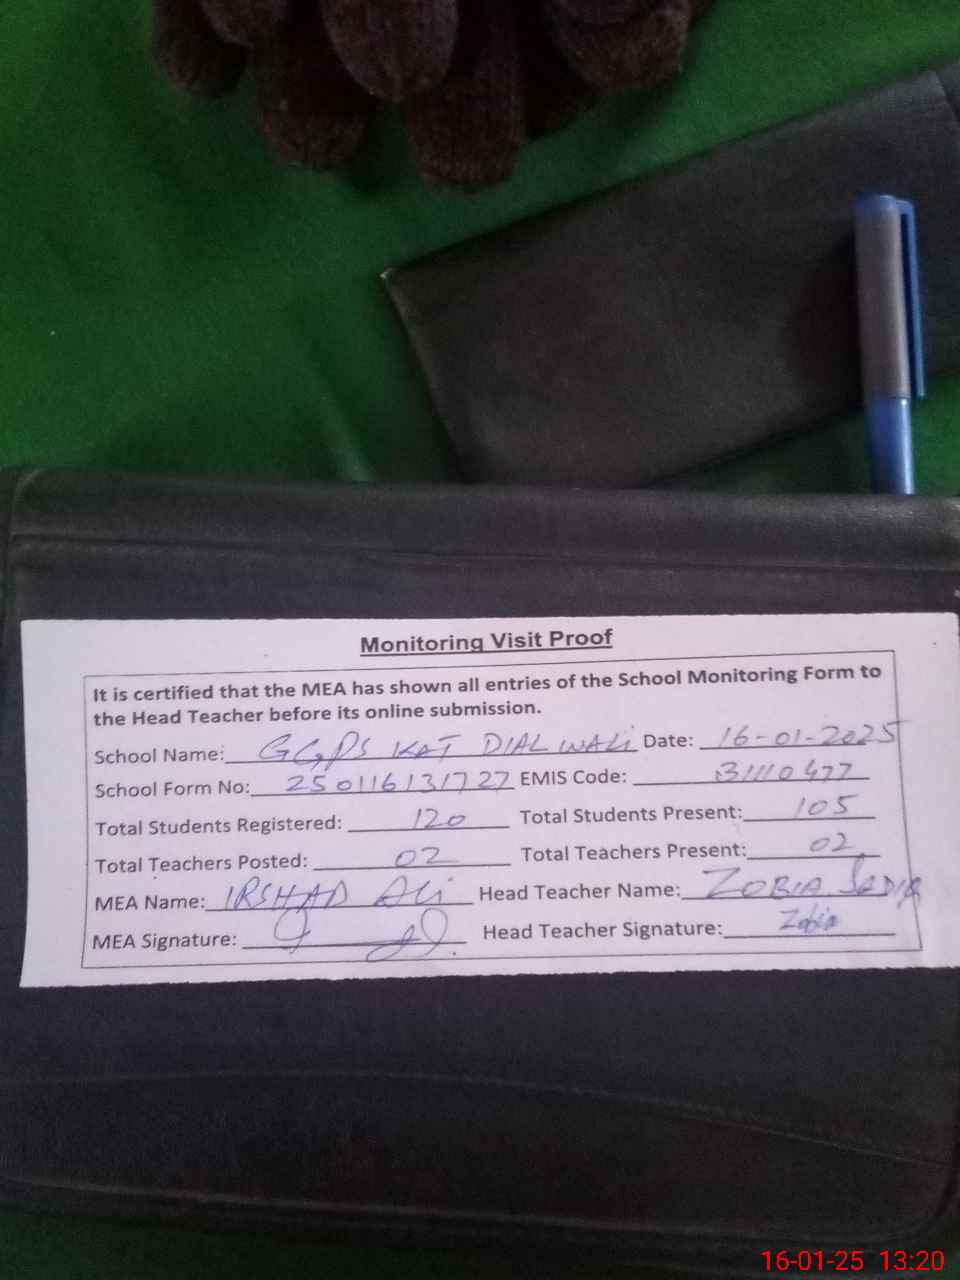 Monitoring Visit Proof
It is certified that the MEA has shown all entries of the School Monitoring Form to
the Head Teacher before its online submission.
School Name: GGPS KAT DIAL WALi Date: 16-01-2025
School Form No: 250116131727 EMIS Code: 31110477
Total Students Registered: 120 Total Students Present: 105
Total Teachers Posted: 02 Total Teachers Present: 02
MEA Name: IRSHAD ALi Head Teacher Name: ZOBIA SADIQ
MEA Signature: Head Teacher Signature: Zobia
16-01-25 13:20